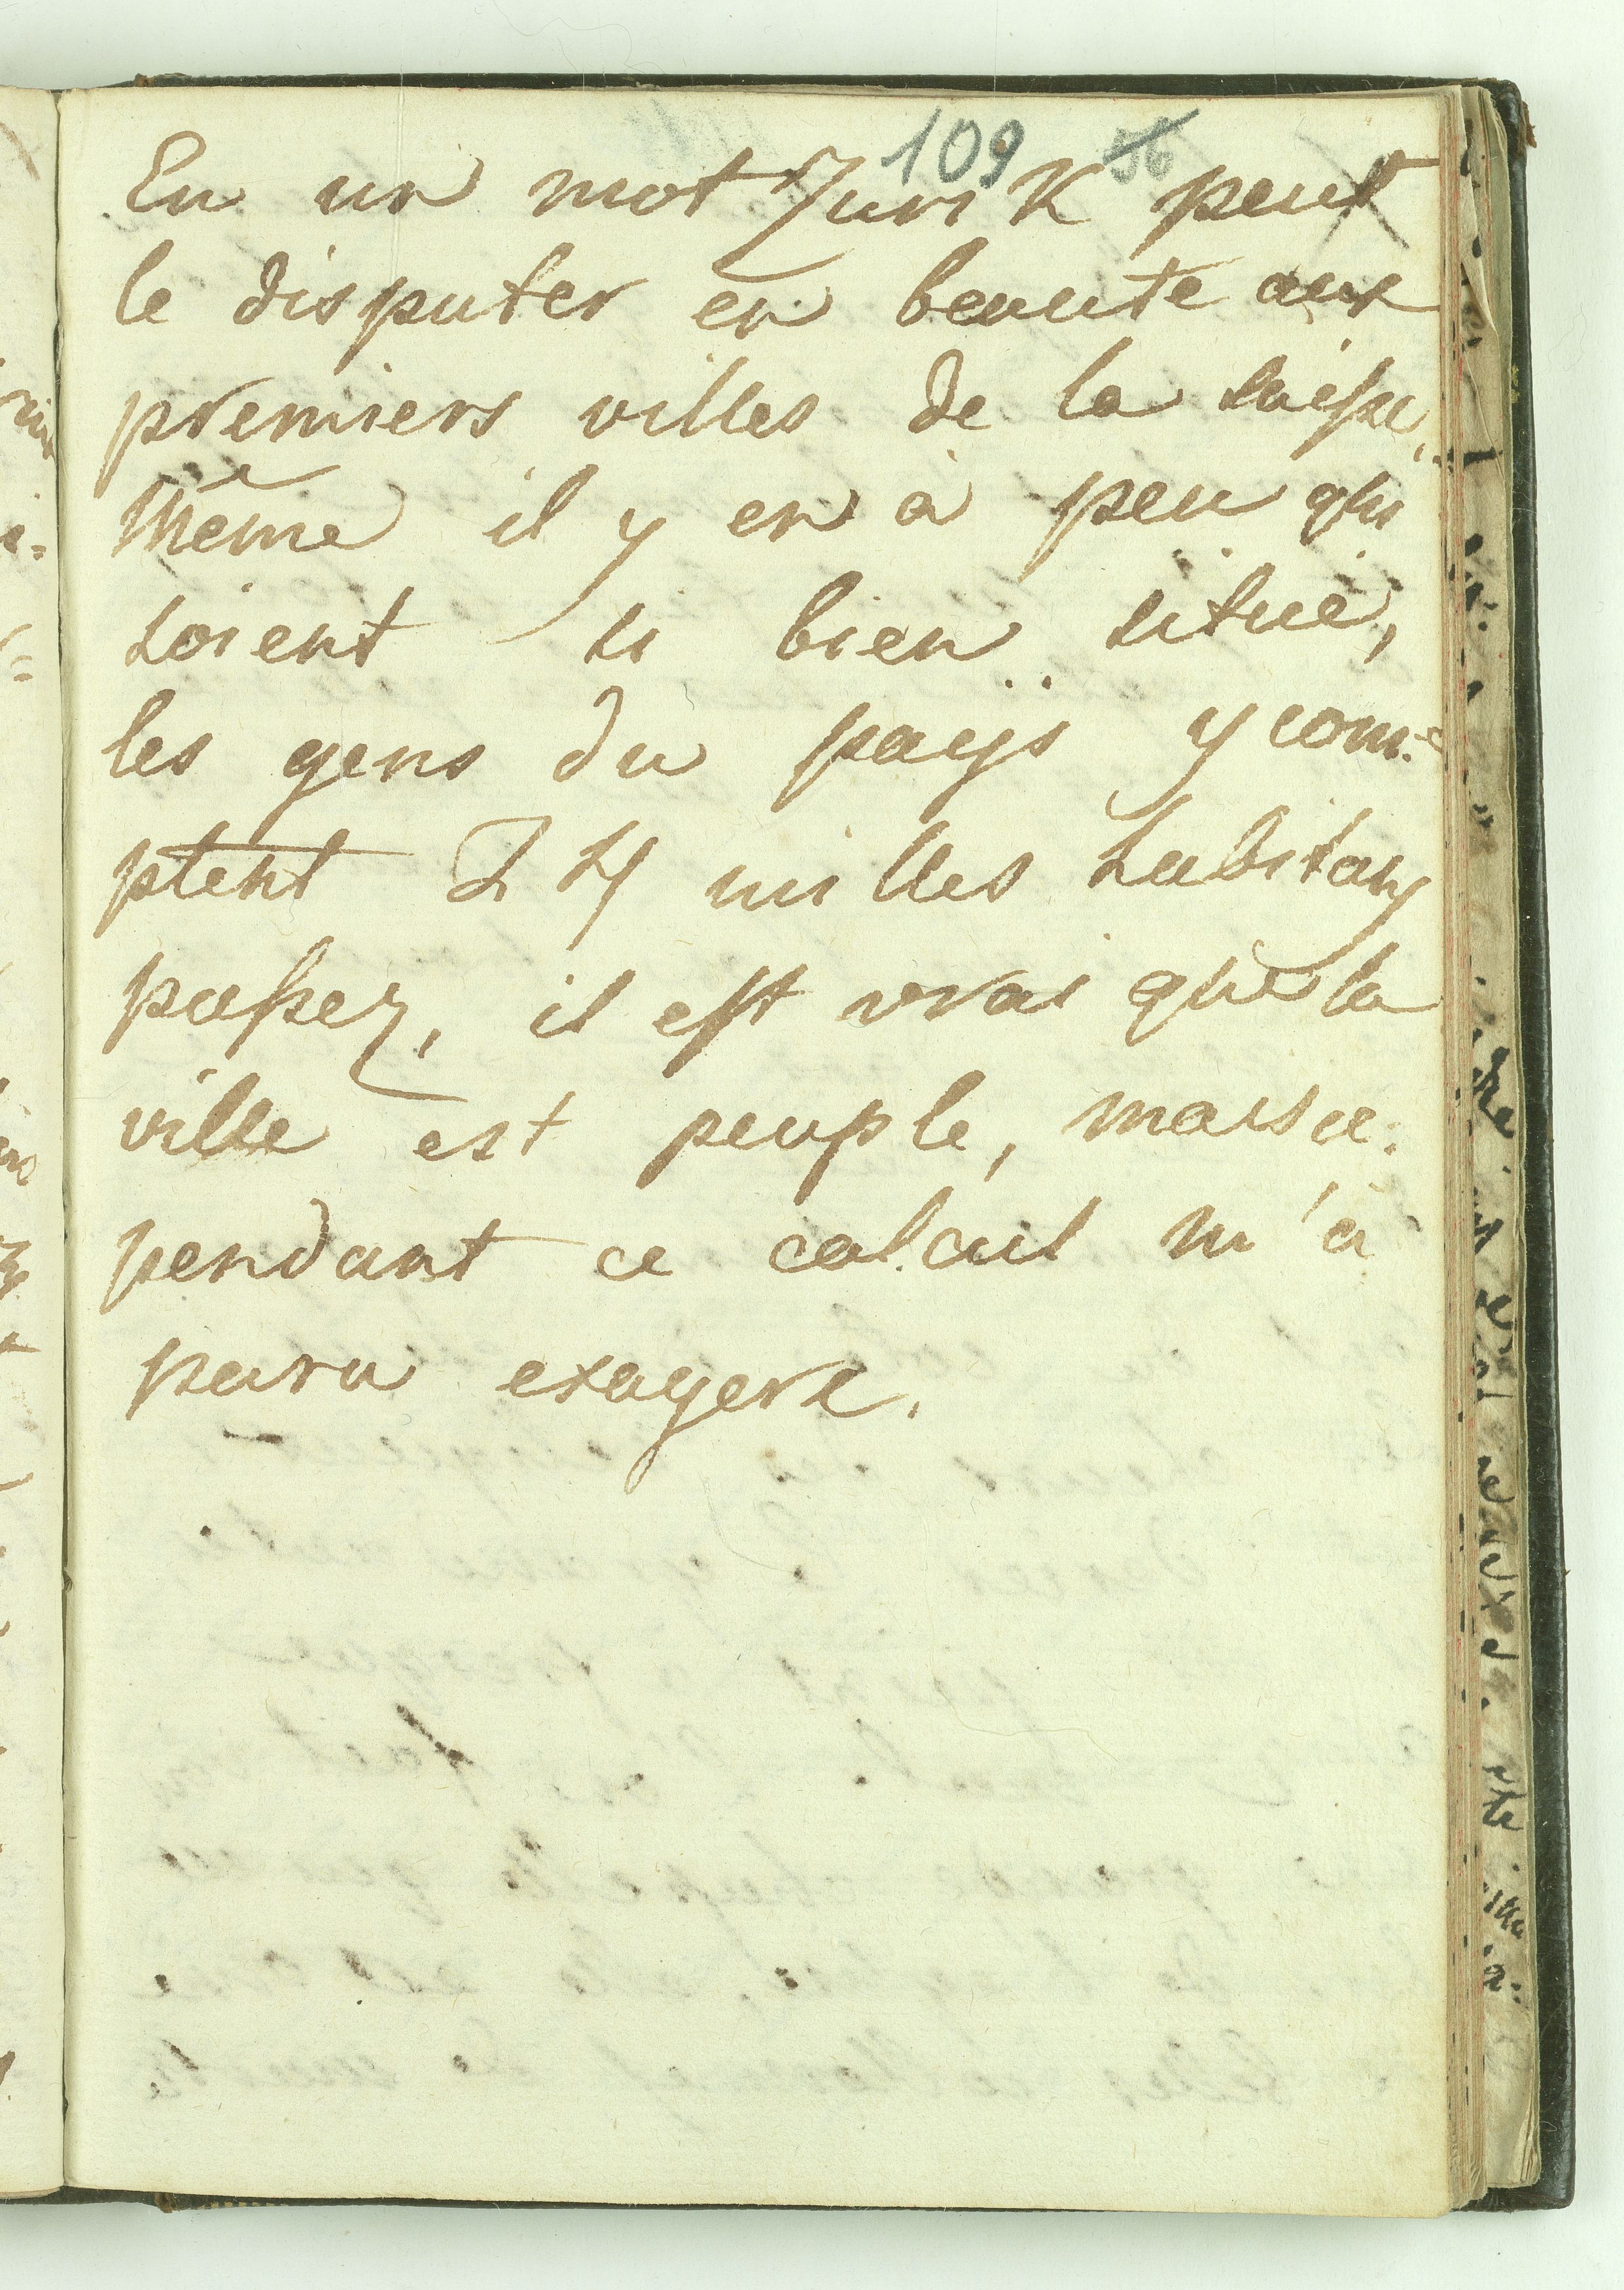 109 56
En un mot Zurik peut
le disputer en beaute aux
premiers villes de la suisse,
Même il y en à peu qui
soient si bien situé,
les gens du paÿs y com:
ptent 24 milles habitans
passez, il est vrai que la
ville est peuple, mais ce:
pendant ce calcul m'à
paru exagere.